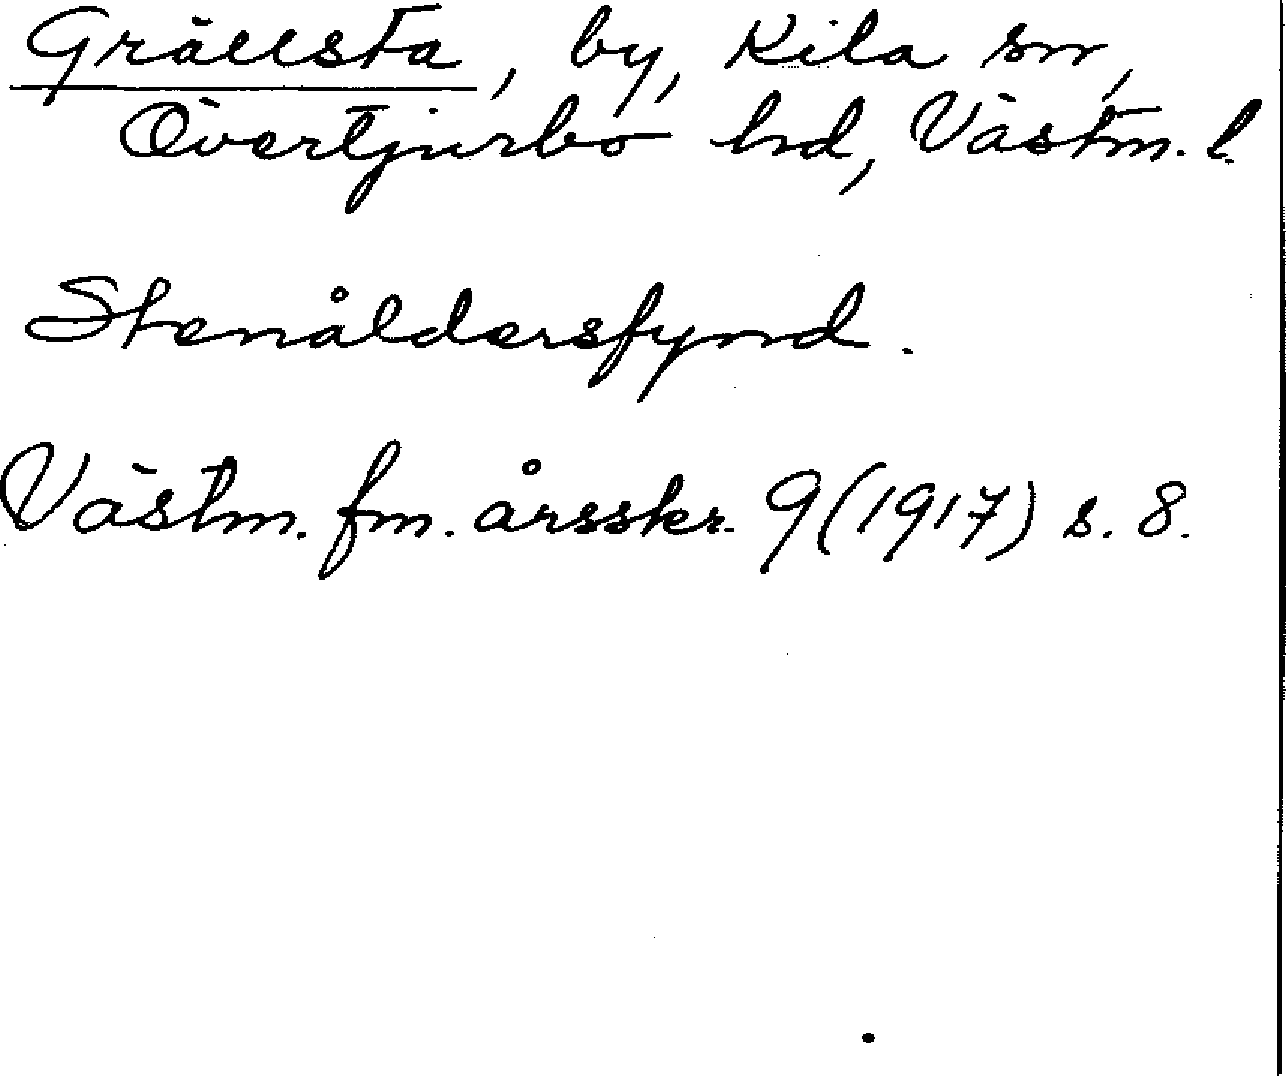 Grällsta, by, Kila sn,
Övertjurbo hd, Västm. l.
Stenåldersfynd.
Västm. fm. årsskr. 9 (1917) s. 8.